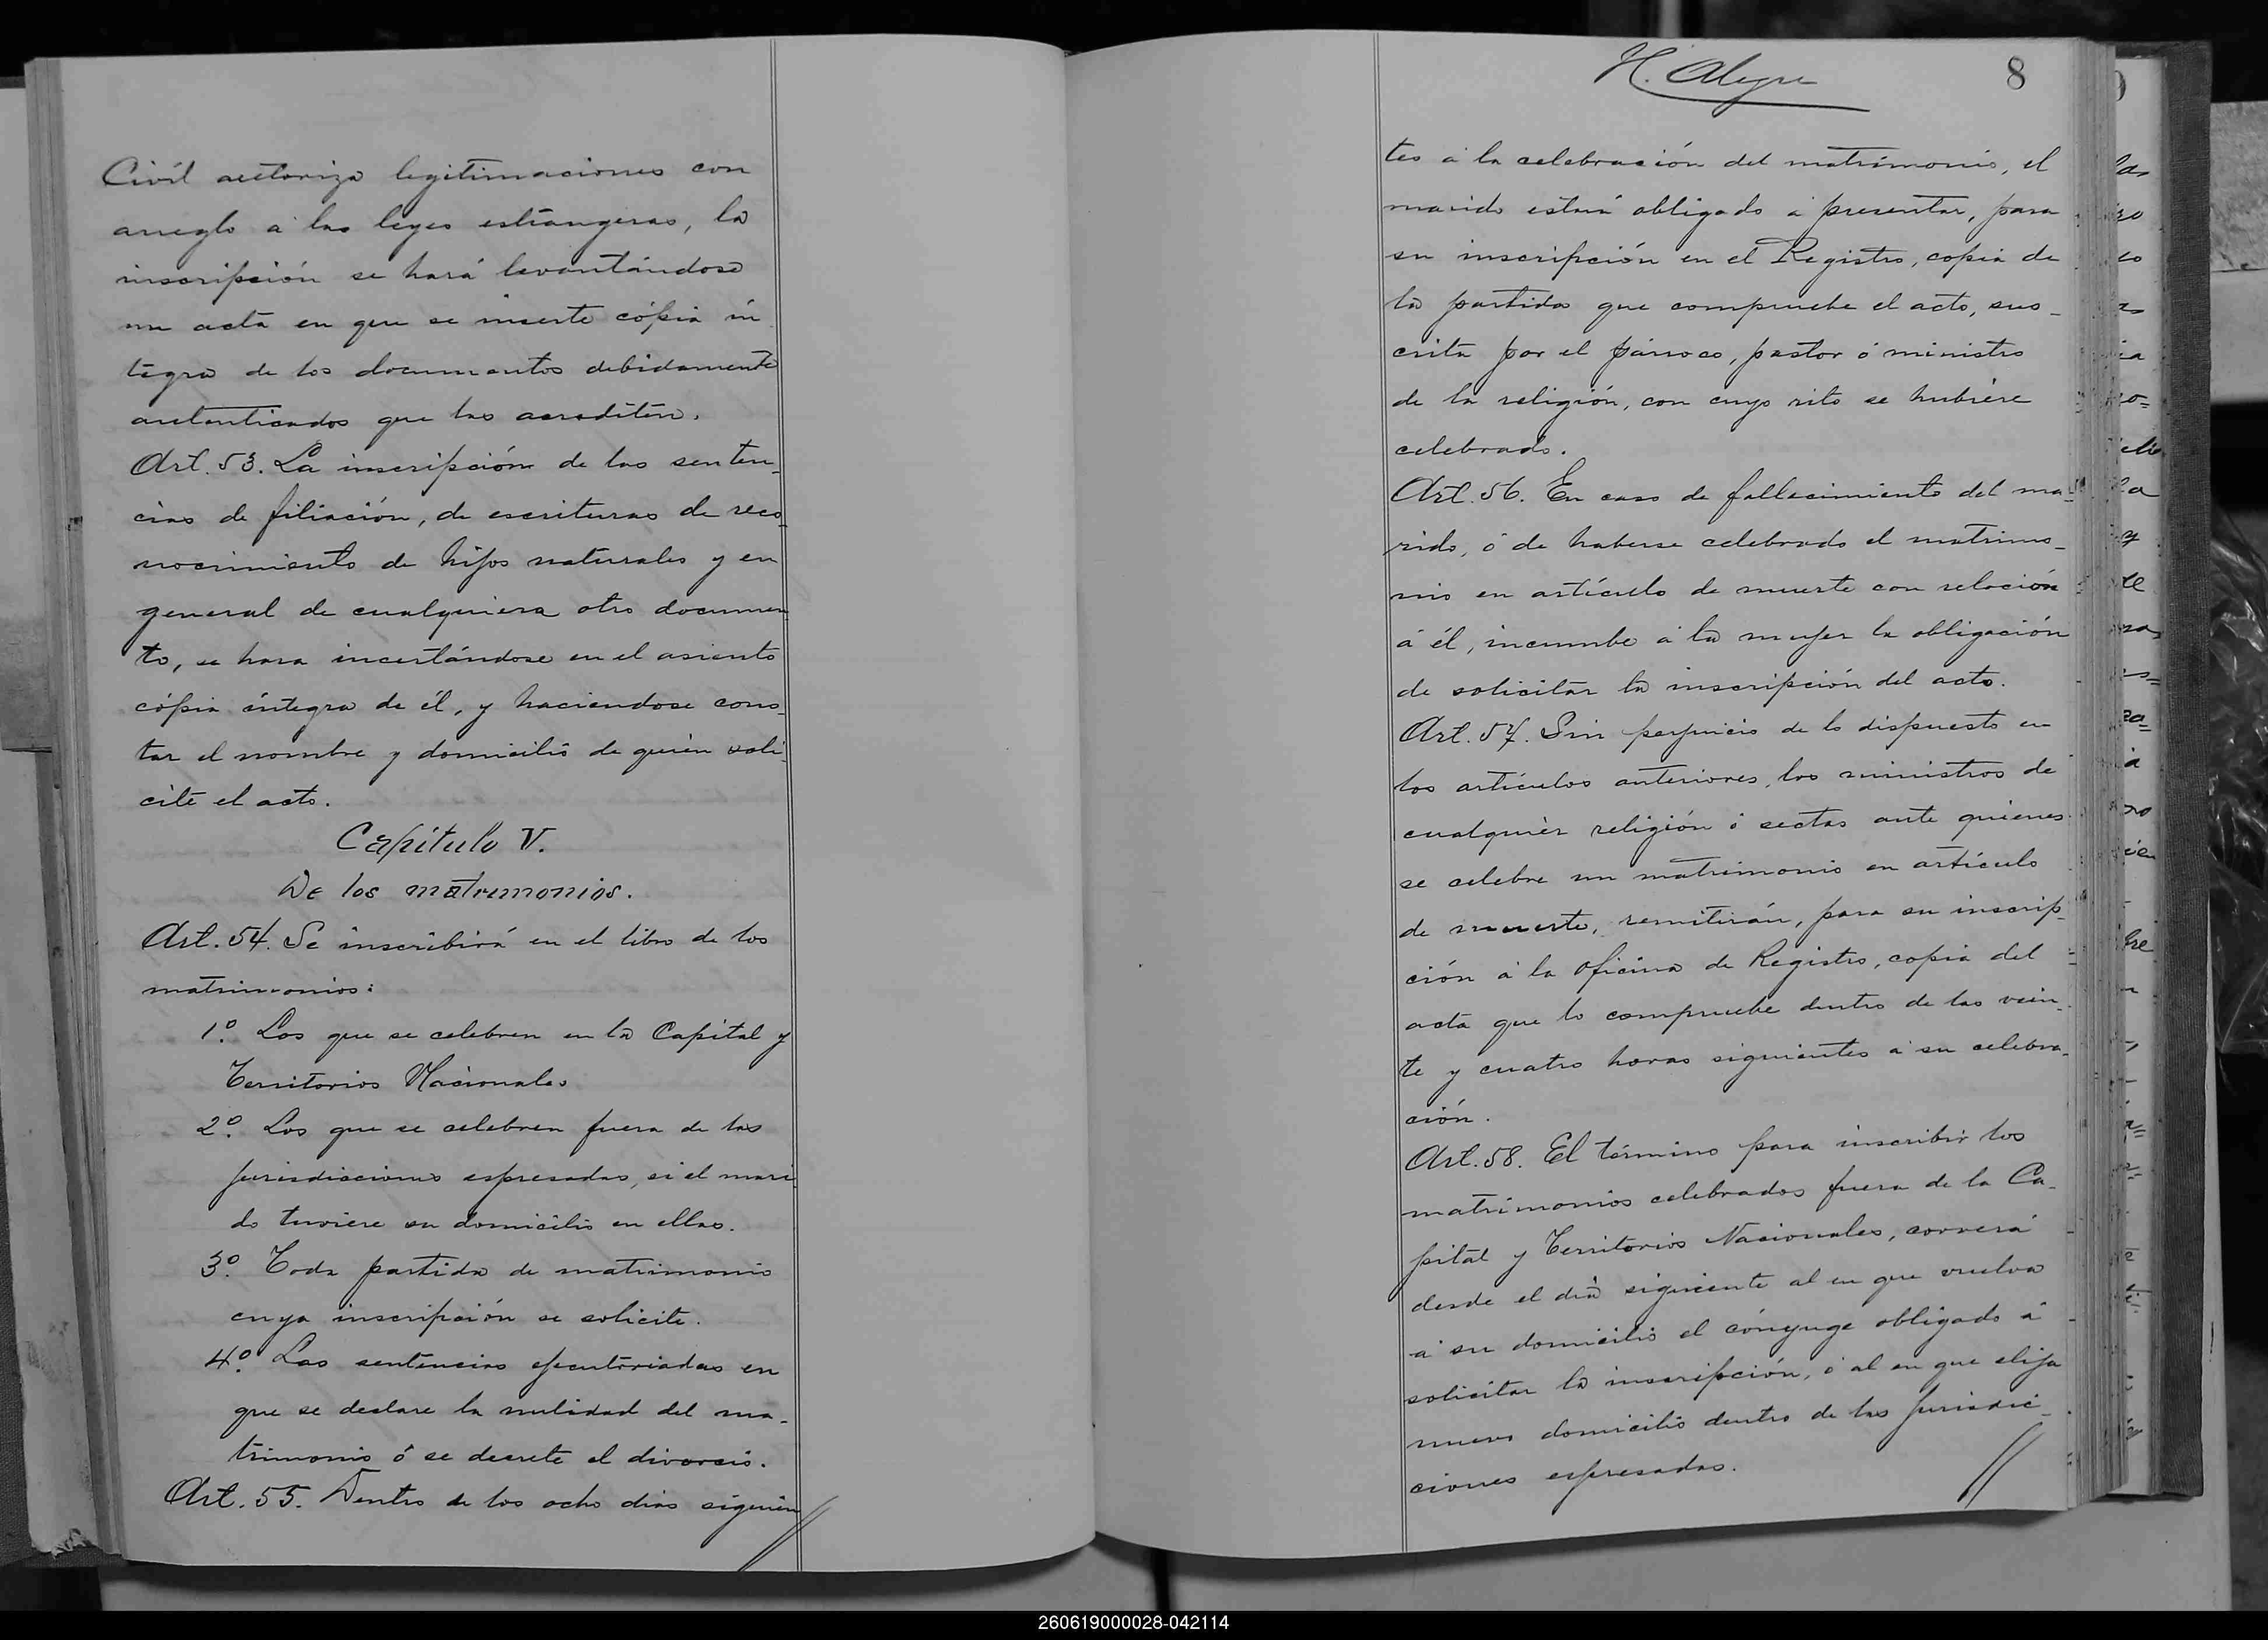 Civil autoriza legitimaciones con
arreglo á las leyes estrangeras, la
inscripción se hará levantándose
un acta en que se inserte cópia ín
tegra de los documentos debidamente
autenticados que las acrediten.
Art. 53. La inscripción de las senten_
cias de filiación, de escrituras de reco_
nocimiento de hijos naturales y en
general de cualquiera otro documen
to, se hara incertándose en el asiento
cópia íntegra de él, y haciendose cons_
tar el nombre y domicilio de quién soli_
cite el acto.
Capítulo V.
De los matrimonios.
Art. 54. Se inscribirá en el libro de los
matrimonios:
1º. Los que se celebren en la Capital y
Territorios Nacionales
2º. Los que se celebren fuera de las
jurisdicciones espresadas, si el mari
do tuviere su domicilio en ellas.
3º. Toda partida de matrimonio
cuya inscripción se solicite.
4º. Las sentencias ejecutoriadas en
que se declare la nulidad del ma_
trimonio ó se decrete el divorcio.
Art. 55. Dentro de los ocho dias siguien
H. Alegre
8
tes á la celebración del matrimonio, el
marido estará obligado á presentar, para
su inscripción en el Registro, copia de
la partida que compruebe el acto, sus_
crita por el párroco, pastor ó ministro
de la religión, con cuyo rito se hubiere
celebrado.
Art. 56. En caso de fallecimiento del ma_
rido, ó de haberse celebrado el matrimo_
nio en artículo de muerte con relación
á él, incumbe á la mujer la obligación
de solicitar la inscripción del acto.
Art. 57. Sin perjuicio de lo dispuesto en
los artículos anteriores, los ministros de
cualquier religión ó sectas ante quienes
se celebre un matrimonio en artículo
de muerte, remitirán, para su inscrip_
ción á la oficina de Registro, copia del
acta que lo compruebe dentro de las vein_
te y cuatro horas siguientes á su celebra_
ción.
Art. 58. El término para inscribir los
matrimonios celebrados fuera de la Ca_
pital y Territorios Nacionales, correrá
desde el dia siguiente al en que vuelva
á su domicilio el cónyuge obligado á
solicitar la inscripción, ó al en que elija
nuevo domicilio dentro de las jurisdic_
ciones espresadas.
260619000028-042114